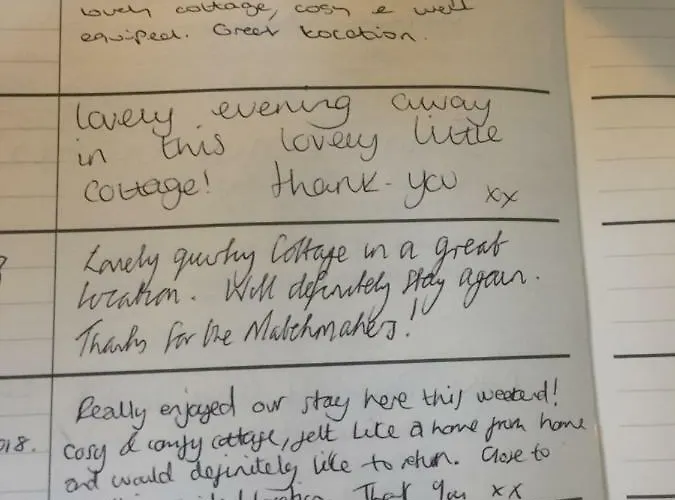 lovely cottage, cosy & well
equiped. Great Location.
Lovely evening away
in this lovely little
cottage! Thank-you xx
Lovely quirky Cottage in a great
location. Will definitely stay again.
Thanks for the Matchmakers!
Really enjoyed our stay here this weekend!
018.
Cosy & comfy cottage, felt like a home from home
and would definitely like to return. Close to
Thank you xx